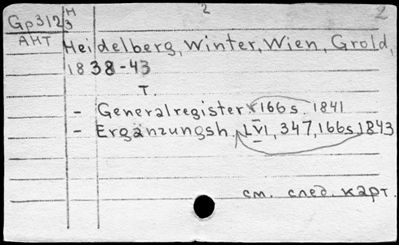 Gp312 H/3 2 2
AHT Heidelberg, Winter, Wien, Grold,
1838-43
T.
- Generalregister 166 s. 1841
- Ergänzungsh. LVI, 347, 166 s. 1843
см. след. карт.